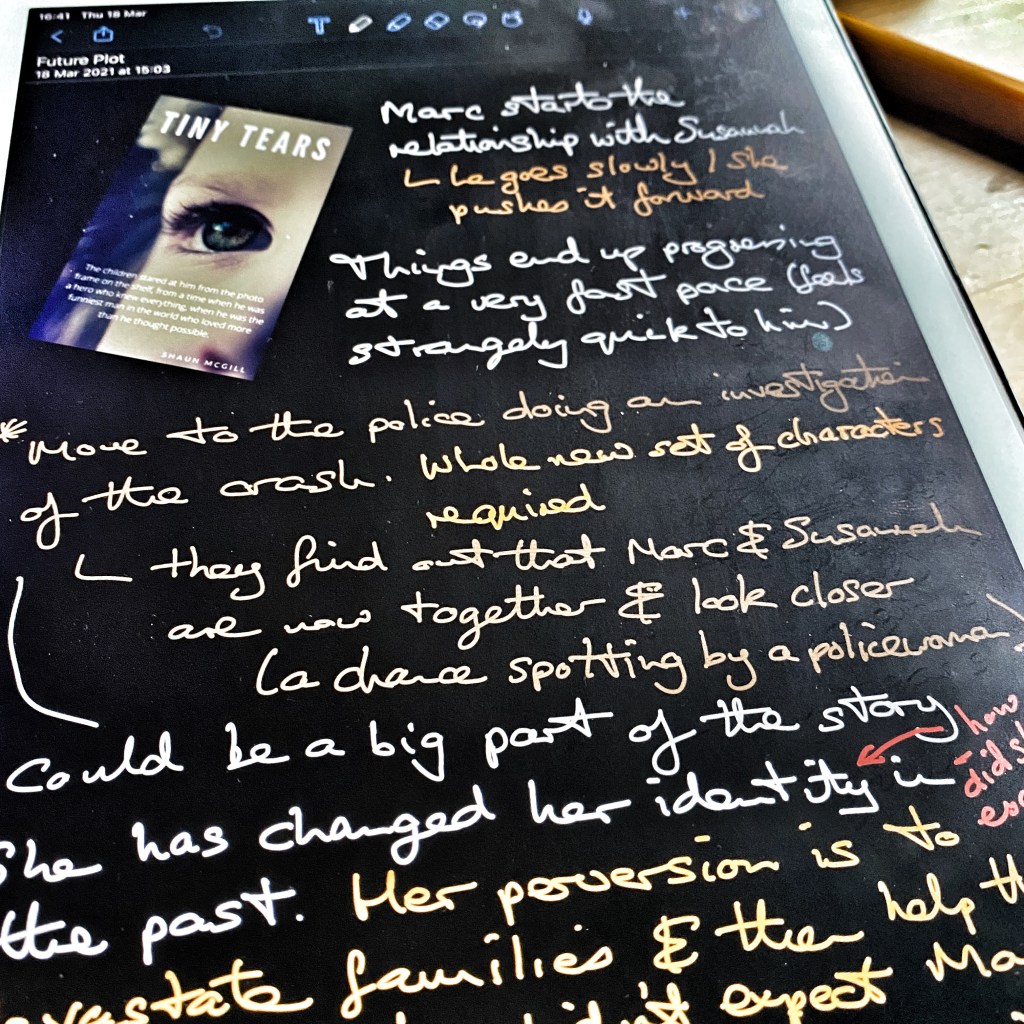 16:41 Thu 18 Mar
Future Plot
18 Mar 2021 at 15:03
TINY TEARS
The children stared at him from the photo
frame on the shelf, from a time when he was
a hero who knew everything, when he was the
funniest man in the world who loved more
than he thought possible.
SHAUN MCGILL
Marc starts the
relationship with Susannah
he goes slowly / she
pushes it forward
Things end up progressing
at a very fast pace (feels
strangely quick to him)
* Move to the police doing an investigation
of the crash. Whole new set of characters
required
they find out that Marc & Susannah
are now together & look closer
(a chance spotting by a policewoman)
Could be a big part of the story
how
She has changed her identity in
did
the past. Her perversion is to
devastate families & then help
expect